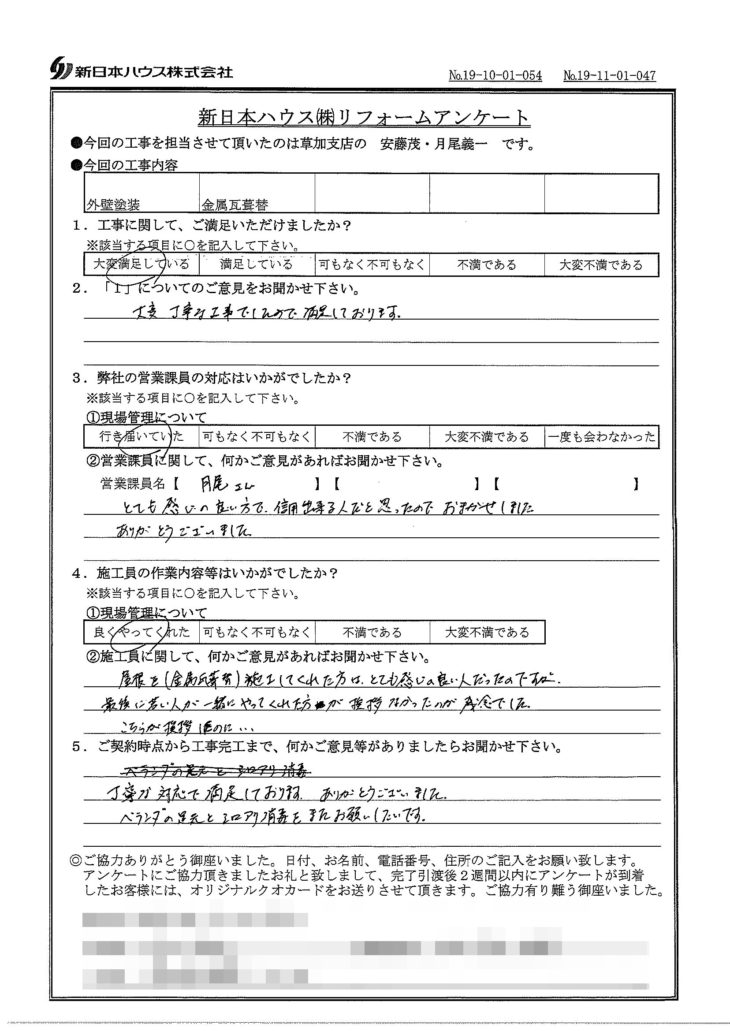 新日本ハウス株式会社
№19-10-01-054 №19-11-01-047
新日本ハウス㈱リフォームアンケート
●今回の工事を担当させて頂いたのは草加支店の 安藤茂・月尾義一 です。
●今回の工事内容
外壁塗装 金属瓦葺替
1．工事に関して、ご満足いただけましたか？
※該当する項目に○を記入して下さい。
大変満足している 満足している 可もなく不可もなく 不満である 大変不満である
2．「1」についてのご意見をお聞かせ下さい。
大変 丁寧な工事でしたので 満足しております。
3．弊社の営業課員の対応はいかがでしたか？
※該当する項目に○を記入して下さい。
①現場管理について
行き届いていた 可もなく不可もなく 不満である 大変不満である 一度も会わなかった
②営業課員に関して、何かご意見があればお聞かせ下さい。
営業課員名【 月尾 】【 】【 】
とても感じの良い方で、信用出来る人だと思ったので おまかせしました
ありがとうございました。
4．施工員の作業内容等はいかがでしたか？
※該当する項目に○を記入して下さい。
①現場管理について
良くやってくれた 可もなく不可もなく 不満である 大変不満である
②施工員に関して、何かご意見があればお聞かせ下さい。
屋根を(金属瓦葺替)施工してくれた方は、とても感じの良い人だったのですが、
最後に若い人が一緒にやってくれた方が 挨拶なかったのが 残念でした。
こちらが挨拶 のに…
5．ご契約時点から工事完工まで、何かご意見等がありましたらお聞かせ下さい。
ベランダの足元とシロアリ消毒
丁寧な対応で満足しております。 ありがとうございました。
ベランダの足元とシロアリ消毒をまたお願いしたいです。
◎ご協力ありがとう御座いました。日付、お名前、電話番号、住所のご記入をお願い致します。
アンケートにご協力頂きましたお礼と致しまして、完了引渡後2週間以内にアンケートが到着
したお客様には、オリジナルクオカードをお送りさせて頂きます。ご協力有り難う御座いました。